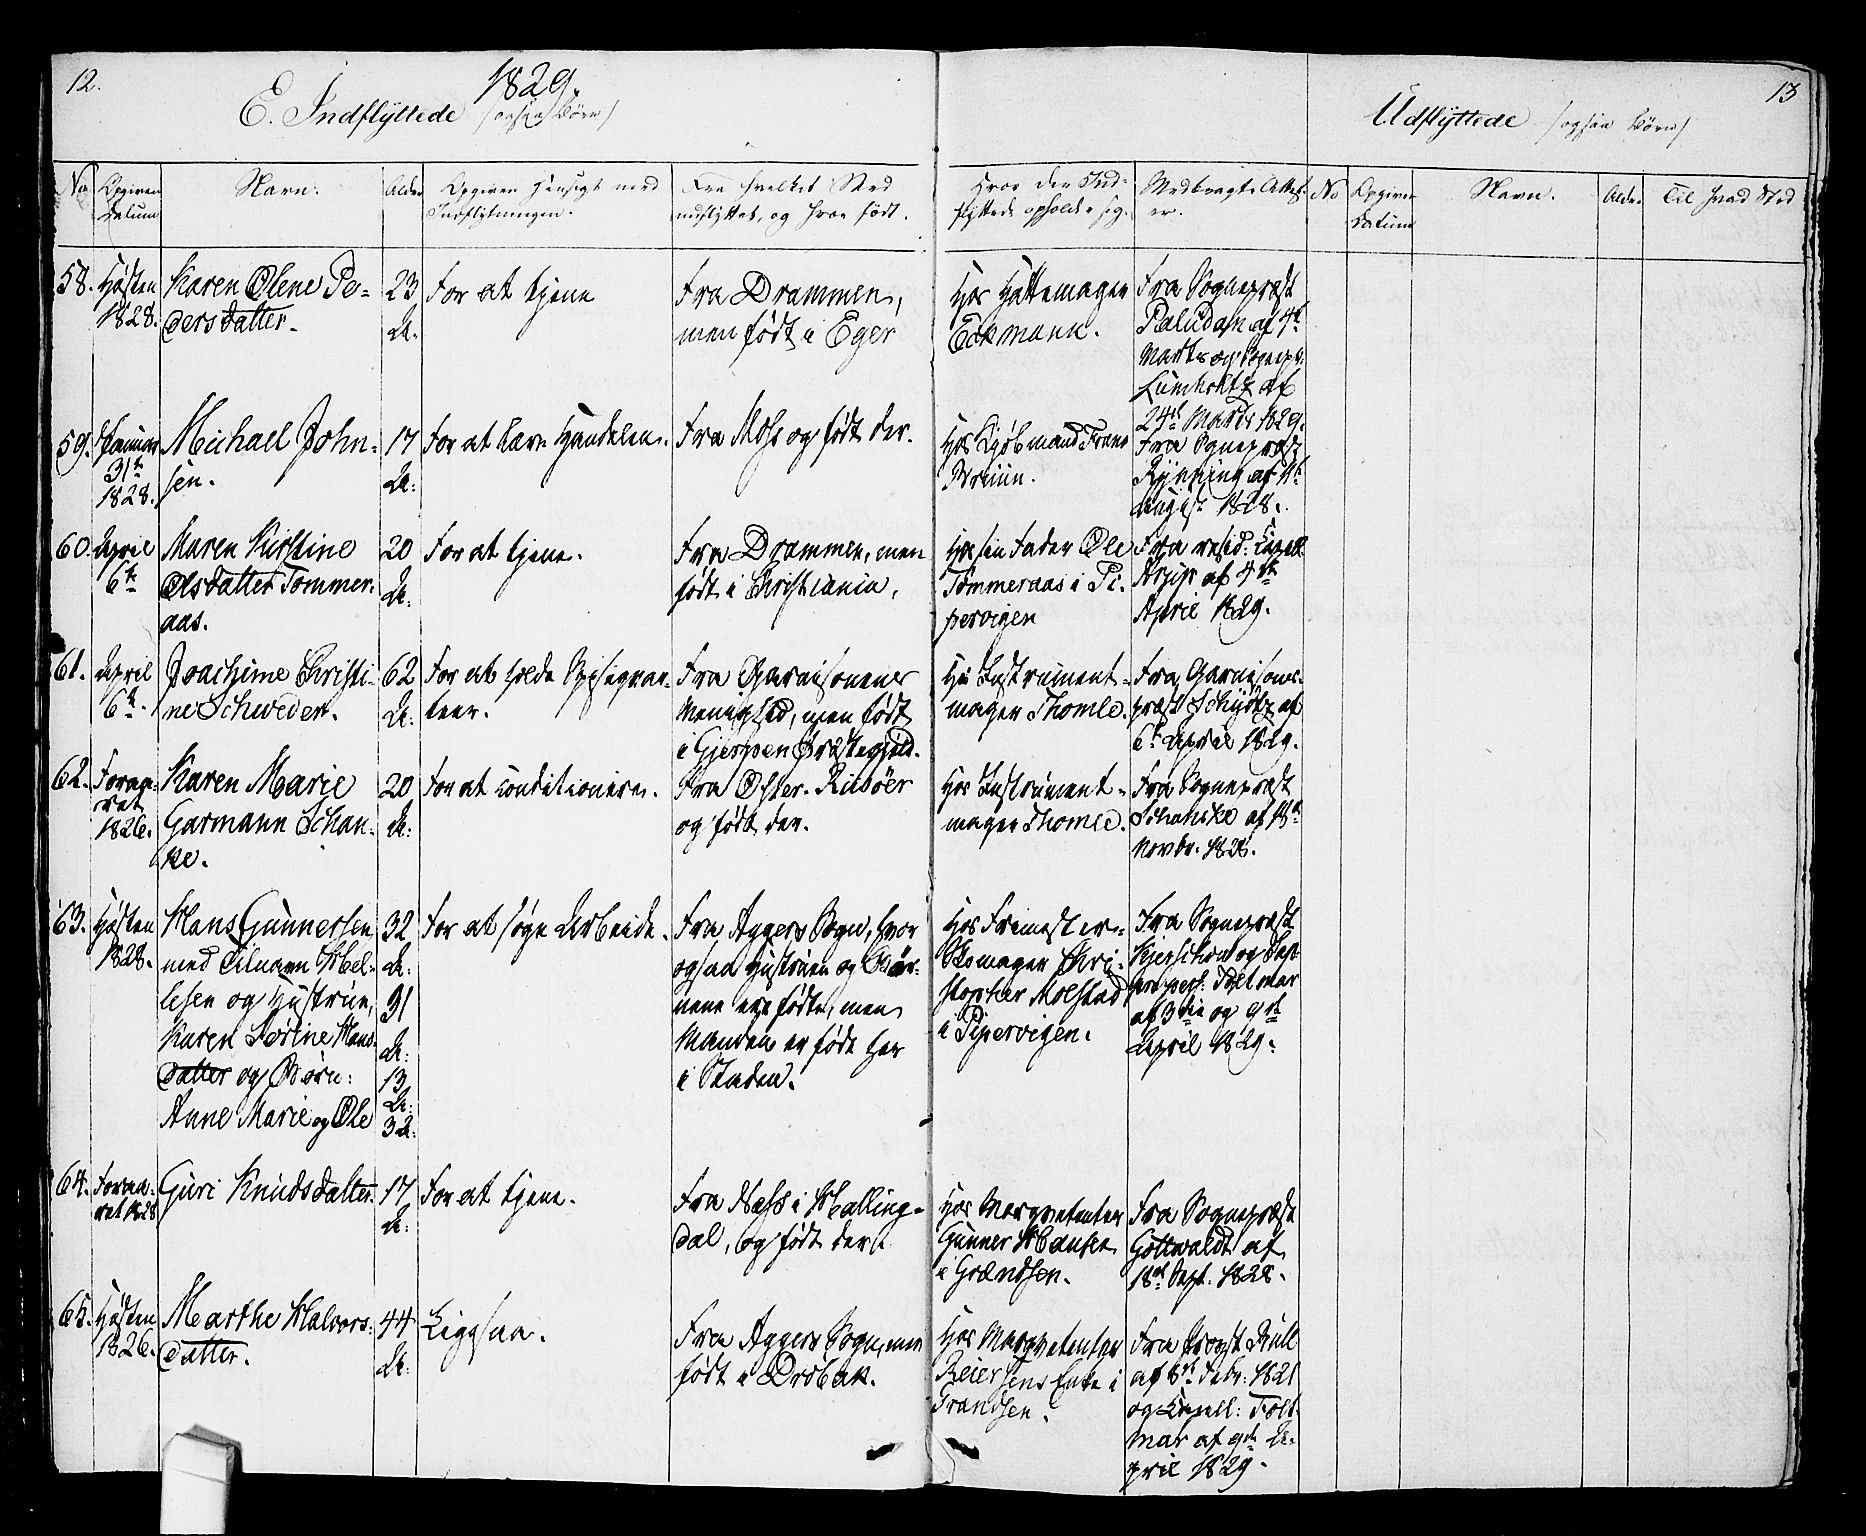 12.
1829.
E. Indflyttede /ogsaa Børn/
No
Opgiven Datum
Navn.
Alder
Opgiven Hensigt med
Indflytningen.
Fra hvilket Sted
indflyttet, og hvor født.
Hvor den Ind-
flyttede opholder sig.
Medbragte Attest
er.
58.
Høsten
1828.
Karen Olene Pe-
dersdatter.
23
A:
For at tjene
Fra Drammen,
men født i Eger
Hos Hattemager
Eckmann.
Fra Sognepræst
Paludan af 4de
Marts og Sognepr:
Lumholtz af
24de Marts 1829.
59.
Januar
31te
1828.
Michael John-
sen.
17
A:
For at lære Handelen.
Fra Moss og født der.
Hos Kjøbmand Frans
Bruun.
Fra Sognepræst
Rynning af
August 1828.
60.
April
6te
Maren Kirstine
Olsdatter Tommer-
aas.
20
A:
For at tjene.
Fra Drammen, men
født i Christiania,
Hos sin Fader Ole
Tommeraas i Pi-
pervigen
Fra resid: Capell:
af 4de
April 1829.
61.
April
6te
Joachime Christi-
ne Schweder.
62
A:
For at holde Spiseqvar-
teer.
Fra Garnisonens
Menighed, men født
i Gjerpen Præstegjeld.
Hos Instrument-
mager Thomle.
Fra Garnisons-
præst Schydtz af
6te April 1829.
62.
Foraa-
ret
1826.
Karen Marie
Garmann Schan-
ke.
20
A:
For at conditionere.
Fra Øster-Riisöer
og født der.
Hos Instrument-
mager Thomle.
Fra Sognepræst
Schanke af 18de
Novbr. 1828.
63.
Høsten
1828.
Hans Gunnersen
med Tilnavn Hel-
lesen og Hustrue,
Karen Sørine Hans-
datter og Børn:
Anne Marie og Ole
32
A:
31
A:
13
A:
3 A:
For at søge Arbeide.
Fra Aggers Sogn, hvor
ogsaa Hustruen og Bør-
nene ere fødte, men
Manden er født her
i Staden.
Hos Frimester-
Skomager Chri-
stopher Molstad
i Pipervigen.
Fra Sognepræst
Kjerschow og Cap
pers. Toltmar
af 3die og 9de
April 1829.
64.
Foraa-
ret 1828
Guri Knudsdatter.
17
A:
For at tjene.
Fra Næss i Halling-
dal, og født der.
Hos Marqvetenter
Gunner Hansen
i Grændsen.
Fra Sognepræst
Gottwaldt af
18de Sept. 1828.
65.
Høsten
1826.
Marthe Halvors-
datter.
44
A:
Ligesaa.
Fra Aggers Sogn, men
født i Drøbak.
Hos Marqvetenter
Reiersens Enke i
Grændsen.
Fra Provst Kull
af 8de Febr: 1821
og Capell: Tolt-
mar af 9de A-
pril 1829.
13
Udflyttede /ogsaa Børn/
No
Opgiven
Datum
Navn.
Alder
Til hvad Sted